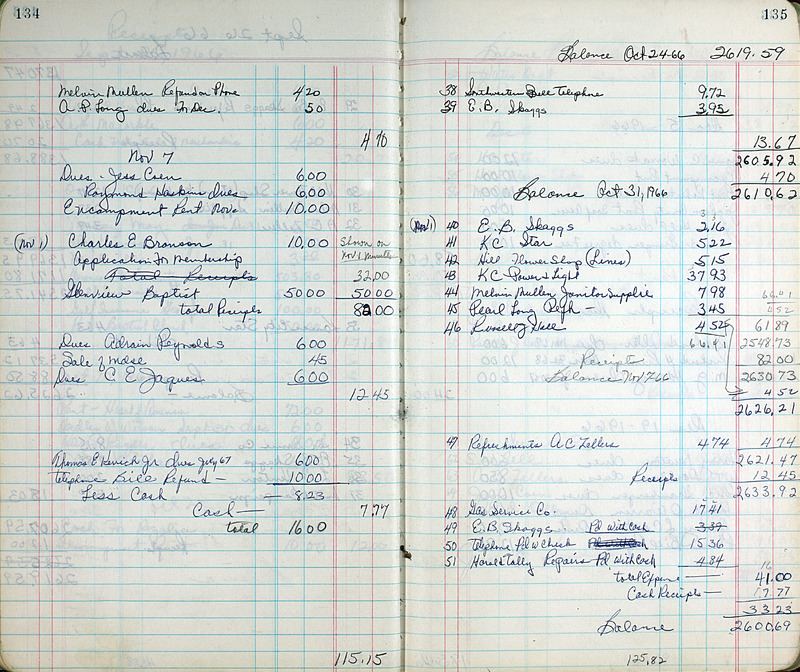 134
Melvin Mullen Refund on Phone 4 20
A P Long dues to Dec. 50
4 70
Nov 7
Dues - Jess Coen 6.00
Raymond Haskins dues 6.00
Encampment Rent Nov. 10.00
(Nov 1) Charles E Bronson 10.00 Shown on
Application for Membership Nov 1 Minutes
Total Receipts 32.00
Glenview Baptist 50.00 50.00
total Receipts 82.00
Dues Adrain Reynolds 6.00
Sale of Mdse 45
Dues C. E. Jaques 6.00
12 45
Thomas E Kevich Jr dues July 67 6.00
Telephone Bill Refund - 10.00
Less Cash - 8.23
Cash - 7.77
total 16 00
115.15
135
Balance Oct 24-66 2619.59
38 Southwestern Bell Telephone 9.72
39 E. B. Skaggs 3.95
13.67
2605.92
4 70
Balance Oct 31, 1966 2610.62
(Nov 1) 40 E. B. Skaggs 2.16
41 KC Star 5.22
42 Hill Flower Shop (Lines) 5.15
43 KC Power & Light 37.93
44 Melvin Mullen Janitor Supplies 7.98
45 Pearl Long - 3.45
46 Russell Hill 4.52 61 89
66.91 2548.73
Receipts 82 00
Balance Nov 7 66 2630.73
4 52
2626.21
47 Refreshments A C Zellers 4.74 4.74
2621.47
Receipts 12 45
2633.92
48 Gas Service Co. 17.41
49 E. B. Skaggs Pd With Cash 3.39
50 Telephone Pd w Check Pd with Cash 15.36
51 Harold Tally Repairs Pd. With Cash 4.84
total Expense - 41.00
Cash Receipts - 7.77
33.23
Balance 2600.69
125.82